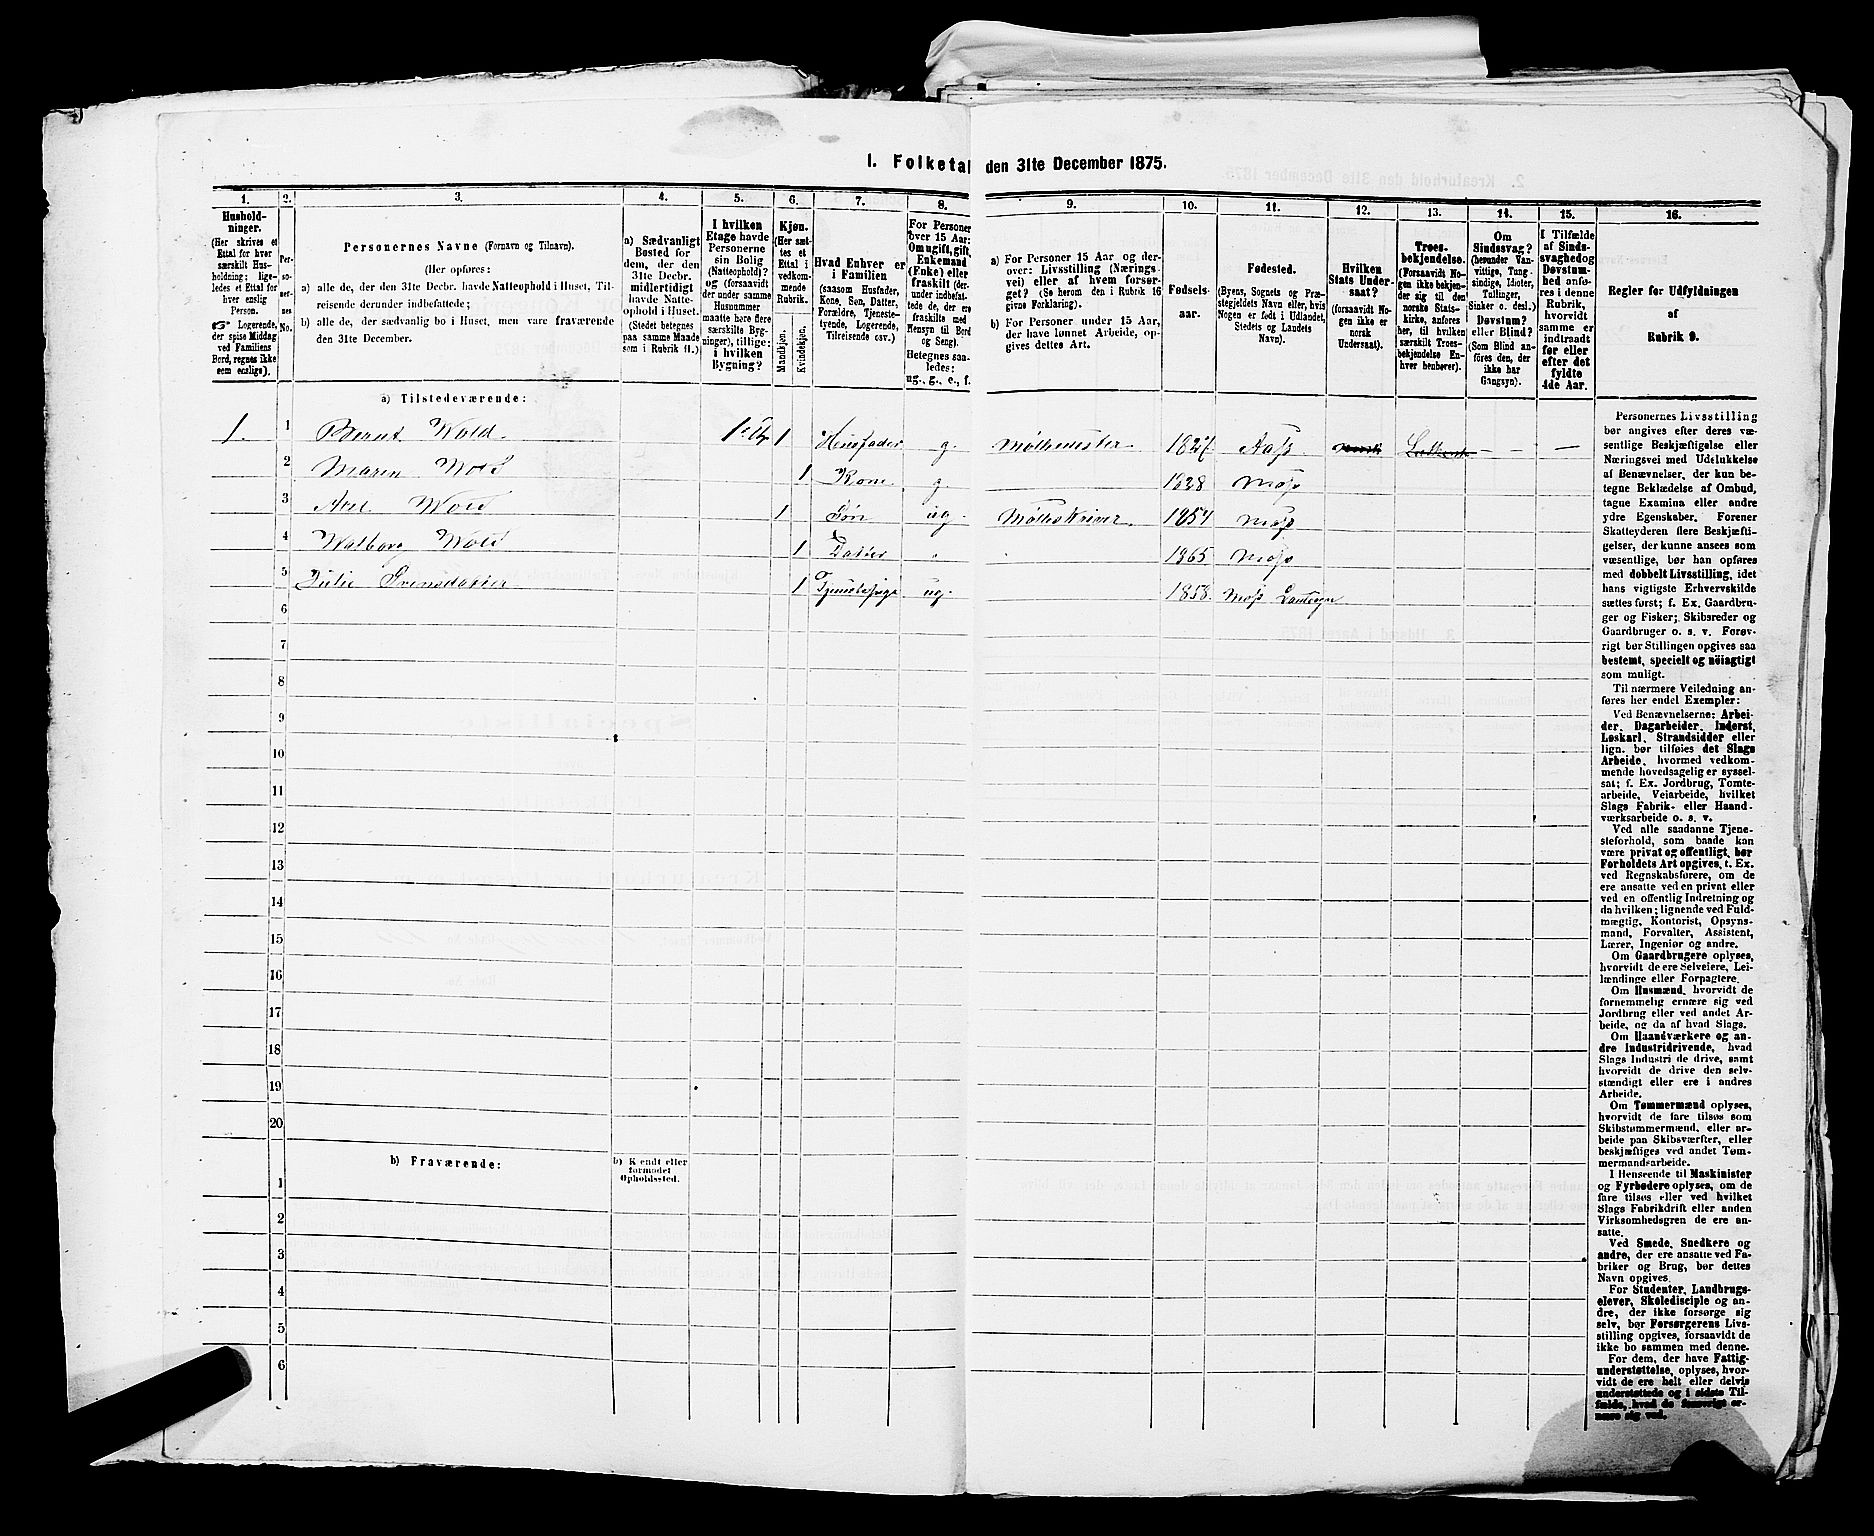 1. Folketal den 31te December 1875.
1. 2. 3. 4. 5. 6. 7. 8. 9. 10. 11. 12. 13. 14. 15. 16.
Husholdninger.
(Her skrives et
Ettal for hver
særskilt Husholdning;
ligeledes et Ettal for
hver enslig
Person.
Logerende,
der spise Middag
ved Familiens
Bord, regnes ikke
som enslige).
Personernes No.
Personernes Navne (Fornavn og Tilnavn).
(Her opføres:
a) alle de, der den 31te Decbr. havde Natteophold i Huset, Tilreisende derunder indbefattede;
b) alle de, der sædvanlig bo i Huset, men vare fraværende
den 31te December.
a) Sædvanligt
Bosted for
dem, der den
31te Decbr.
midlertidigt
havde Natteophold i Huset.
(Stedet betegnes
paa samme Maade
som i Rubrik 11.)
I hvilken
Etage havde
Personerne
sin Bolig
(Natteophold)?
og (forsaavidt
der under samme
Husnummer
maatte høre flere
særskilte Bygninger), tillige:
i hvilken
Bygning?
Kjøn.
(Her sættes et
Ettal i
vedkommende
Rubrik.
Mandkjøn.
Kvindekjøn.
Hvad Enhver er
i Familien
(saasom Husfader,
Kone, Søn, Datter,
Forældre, Tjenestetyende, Logerende,
Tilreisende osv.)
For Personer
over 15 Aar:
Om ugift, gift,
Enkemand
(Enke) eller
fraskilt (derunder indbefattede de, der ere
fraskilte med
Hensyn til Bord
og Seng).
Betegnes saaledes:
ug., g., e., f.
a) For Personer 15 Aar og derover: Livsstilling (Næringsvei) eller af hvem forsørget? (Se herom den i Rubrik 16
givne Forklaring).
b) For Personer under 15 Aar,
der have lønnet Arbeide, opgives dettes Art.
Fødselsaar.
Fødested.
(Byens, Sognets og Præstegjeldets Navn eller, hvis
Nogen er født i Udlandet,
Stedets og Landets
Navn).
Hvilken
Stats Undersaat?
(forsaavidt Nogen ikke er
norsk
Undersaat).
Troesbekjendelse.
(Forsaavidt Nogen ikke bekjender sig til den
norske Statskirke, anføres
her, til hvilken
særskilt Troesbekjendelse Enhver henhører).
Om
Sindssvag?
(herunder Vanvittige, Tungsindige, Idioter,
Tullinger,
Sinker o. desl.)
Døvstum?
eller Blind?
(Som Blind anføres den, der
ikke har
Gangsyn).
I Tilfælde
af Sindssvaghed og
Døvstumhed anføres i denne
Rubrik,
hvorvidt
samme er
indtraadt
før eller
efter det
fyldte
4de Aar.
Regler for Udfyldningen
af
Rubrik 9.
a) Tilstedeværende:
1. 1 Bernt Wold. 1 Husfader g. Møllemester 1827 Aas Norsk Luthersk — — —
2 Maren Wold 1 Kone g 1828 Moss
3 Wold 1 Søn ug. 1854 Moss
4 Walborg Wold 1 Datter 1865 Moss
5 Julie Svensdatter 1 Tjenestepige ug. 1858. Moss Landsogn
6
7
8
9
10
11
12
13
14
15
16
17
18
19
20
b) Fraværende:
b) Kendt eller
formodet
Opholdssted.
1
2
3
4
5
6
Personernes Livsstilling
bør angives efter deres væsentlige Beskjæftigelse eller
Næringsvei med Udelukkelse
af Benævnelser, der kun betegne Beklædelse af Ombud,
tagne Examina eller andre
ydre Egenskaber. Forener
Skatteyderen flere Beskjæftigelser, der kunne ansees som
væsentlige, bør han opføres
med dobbelt Livsstilling, idet
hans vigtigste Erhvervskilde
sættes først; f. Ex. Gaardbruger og Fisker; Skibsreder og
Gaardbruger o. s. v. Forøvrigt bør Stillingen opgives saa
bestemt, specielt og nöiagtigt
som muligt.
Til nærmere Veiledning anføres her endel Exempler:
Ved Benævnelserne: Arbeider, Dagarbeider, Inderst,
Løskarl, Strandsidder eller
lign. bør tilføies det Slags
Arbeide, hvormed vedkommende hovedsagelig er sysselsat; f. Ex. Jordbrug, Tomtearbeide, Veiarbeide, hvilket
Slags Fabrik- eller Haandværksarbeide o. s. v.
Ved alle saadanne Tjenesteforhold, som baade kan
være privat og offentligt, bør
Forholdets Art opgives, t. Ex.
ved Regnskabsførere, om de
ere ansatte ved en privat eller
ved en offentlig Indretning og
da hvilken; lignende ved Fuldmægtig, Kontorist, Opsynsmand, Forvalter, Assistent,
Lærer, Ingeniør og andre.
Om Gaardbrugere oplyses,
hvorvidt de ere Selveiere, Leilændinge eller Forpagtere.
Om Husmænd, hvorvidt de
fornemmelig ernære sig ved
Jordbrug eller ved andet Arbeide, og da af hvad Slags.
Om Haandværkere og andre Industridrivende, hvad
Slags Industri de drive, samt
hvorvidt de drive den selvstændigt eller ere i andres
Arbeide.
Om Tømmermænd oplyses,
hvorvidt de fare tilsøs som
Skibstømmermænd, eller arbeide paa Skibsværfter, eller
beskjæftiges ved andet Tømmermandsarbeide.
I Henseende til Maskinister
og Fyrbødere oplyses, om de
fare tilsøs eller ved hvilket
Slags Fabrikdrift eller anden
Virksomhedsgren de ere ansatte.
Ved Smede, Snedkere og
andre, der ere ansatte ved Fabriker og Brug, bør dettes
Navn opgives.
For Studenter, Landbrugselever, Skoledisciple og andre, der ikke forsørge sig
selv, bør Forsørgerens Livsstilling opgives, forsaavidt de
ikke bo sammen med denne.
For dem, der have Fattigunderstøttelse, oplyses, hvorvidt de ere helt eller delvis
understøttede og i sidste Tilfælde, hvad de forøvrigt ernære sig ved.